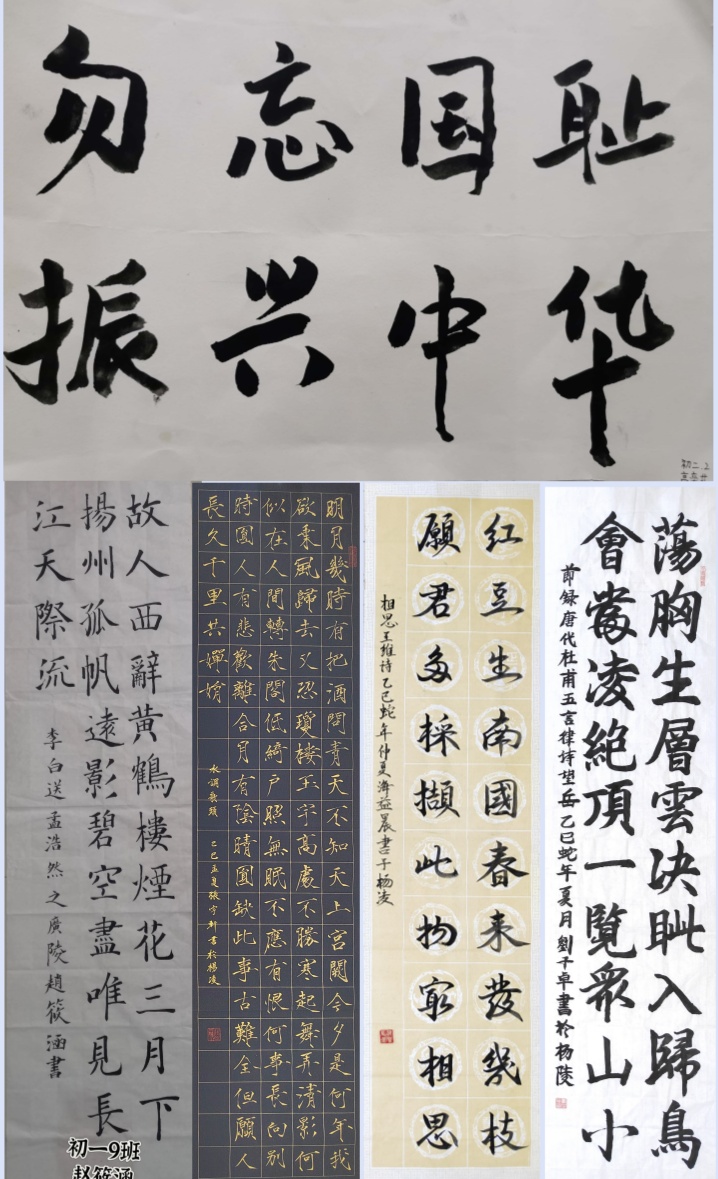 勿忘国耻
振兴中华
故人西辭黄鶴樓煙花三月下
揚州孤帆遠影碧空盡唯見長
江天際流
李白送孟浩然之廣陵趙筱涵書
初一9班
赵筱涵
明月幾時有把酒問青天不知天上宮闕今夕是何年我
欲乘風歸去又恐瓊樓玉宇高處不勝寒起舞弄清影何
似在人間轉朱閣低綺戶照無眠不應有恨何事長向別
時圓人有悲歡離合月有陰晴圓缺此事古難全但願人
長久千里共嬋娟
水調歌頭 乙巳孟夏張宇軒書於楊凌
紅豆生南國春来發幾枝
願君多採擷此物㝡相思
相思王維诗乙巳蛇年仲夏海益晨書于杨凌
蕩胸生層雲決眦入歸鳥
會當凌絶頂一覽衆山小
節録唐代杜甫五言律诗望岳乙巳蛇年夏月劉子卓書於杨陵